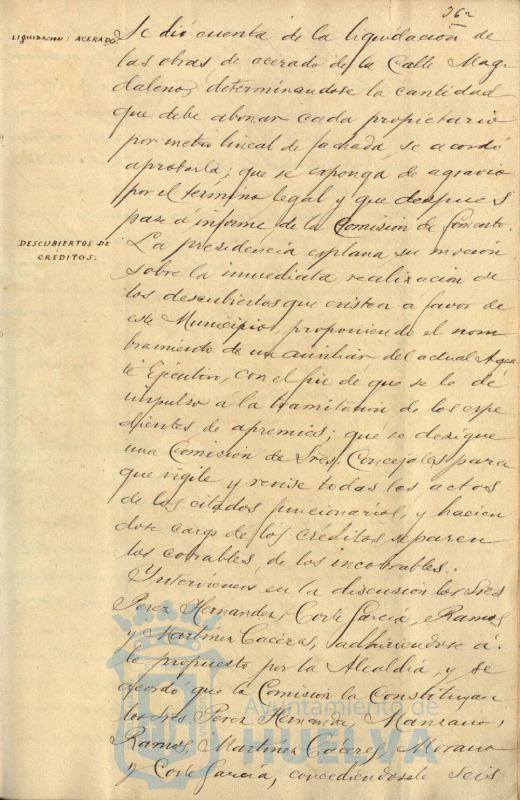 362
LIQUIDACION: ACERADO.
Se dió cuenta de la liquidación de
las obras de acerado de la Calle Mag-
dalena, determinandose la cantidad
que debe abonar cada propietario
por metro lineal de fachada, se acordó
aprobarla; que se exponga de agravio
por el término legal y que despues
pase a informe de la Comisión de Fomento.
DESCUBIERTOS DE
CREDITOS.
La presidencia explana su moción
sobre la inmediata realización de
los descubiertos que existen a favor de
este Municipio, proponiendo el nom
bramiento de un auxiliar del actual Agen
te Ejecutivo, con el fin de que se le dé
impulso a la tramitación de los expe
dientes de apremios; que se designe
una Comisión de Sres. Concejales para
que vigile y revise todas los actos
de los citados funcionarios, y hacien
dose cargo de los créditos separen
los cobrables, de los incobrables.
Intervienen en la discusión los Sres
Perez Hernandez, Corte García, Ramos
y Martinez Caceres, adhiriendose á
lo propuesto por la Alcaldía, y se
acordó que la Comisión la Constituyan
los Sres Perez Hernandez, Manzano,
Ramos, Martinez Caceres, Morano
y Corte García, concediendosele seis
Ayuntamiento de
HUELVA